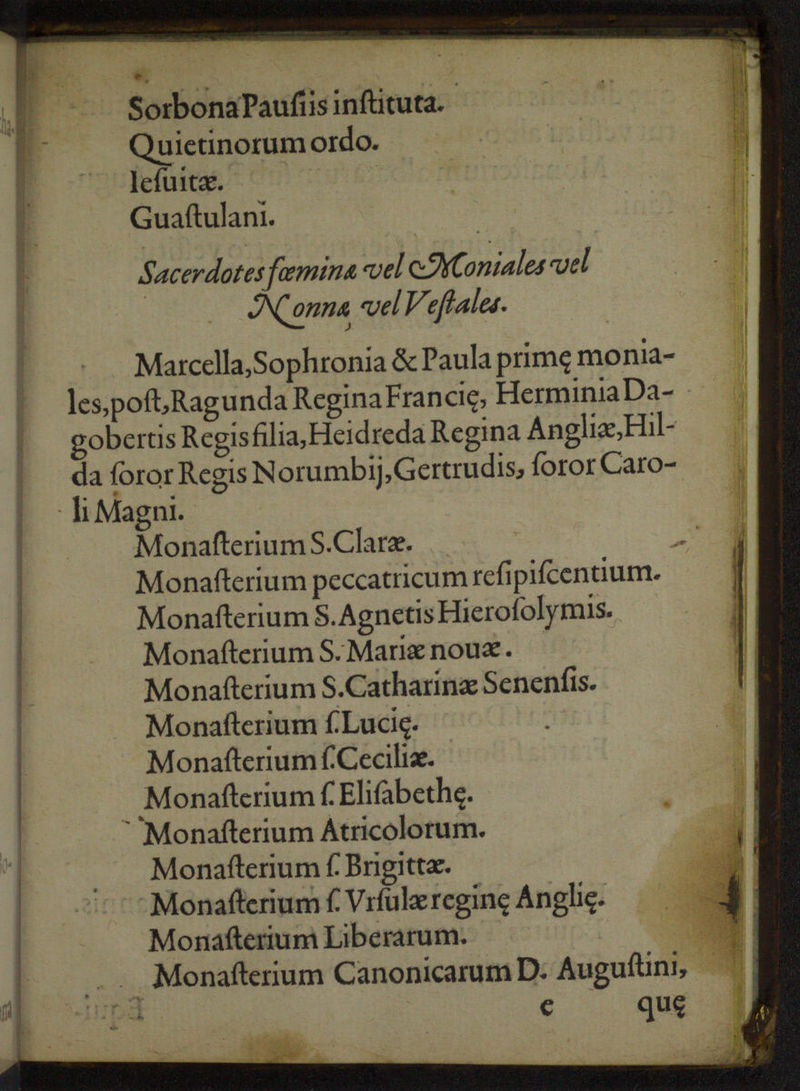 SorbonaPauſiis inſtituta.
Quietinorum ordo.
Ieſuitæ.
Guaſtulani.
Sacerdotes fœminæ vel Moniales vel
Nonnæ vel Veſtales.
Marcella,Sophronia & Paula primę monia-
les,poſt,Ragunda Regina Francię, Herminia Da-
gobertis Regis filia,Heidreda Regina Angliæ,Hil-
da ſoror Regis Norumbij,Gertrudis, ſoror Caro-
li Magni.
Monaſterium S.Claræ.
Monaſterium peccatricum reſipiſcentium.
Monaſterium S.Agnetis Hieroſolymis.
Monaſterium S. Mariæ nouæ.
Monaſterium S.Catharinæ Senenſis.
Monaſterium ſ.Lucię.
Monaſterium ſ.Ceciliæ.
Monaſterium ſ. Eliſabethę.
Monaſterium Atricolorum.
Monaſterium ſ. Brigittæ.
Monaſterium ſ. Vrſulæ reginę Anglię.
Monaſterium Liberarum.
Monaſterium Canonicarum D. Auguſtini,
e quę